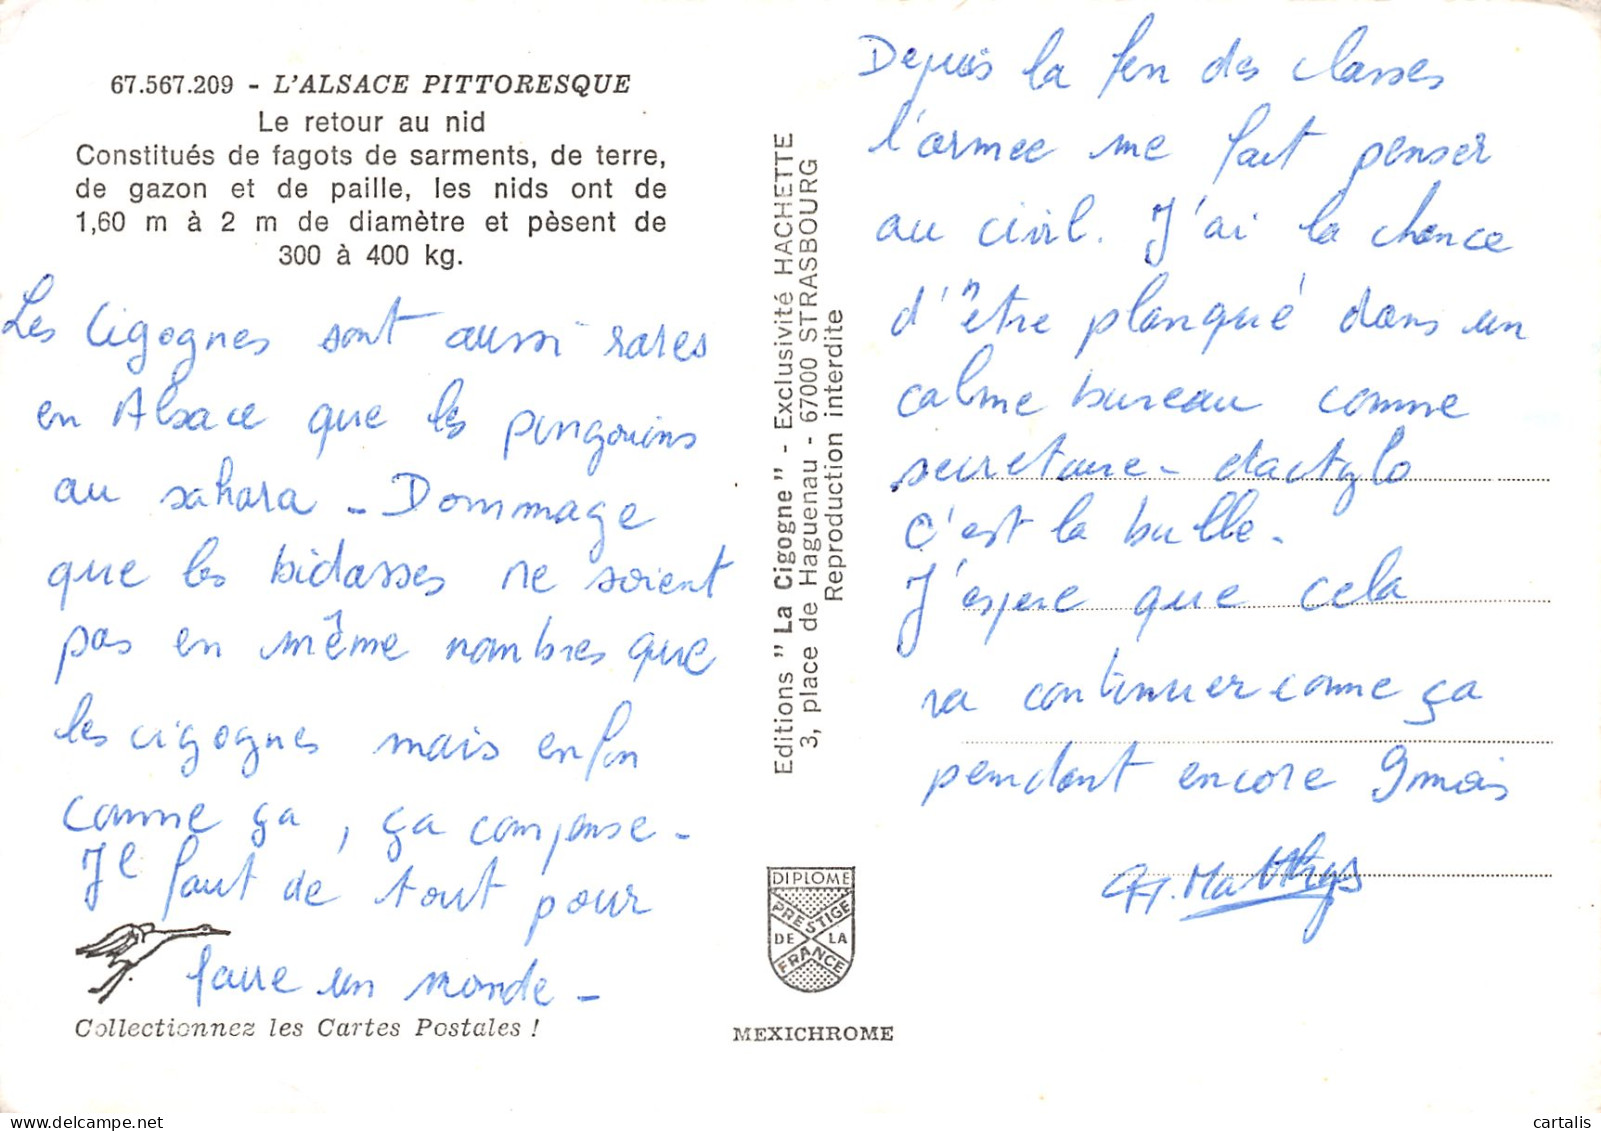 67.567.209 - L'ALSACE PITTORESQUE
Le retour au nid
Constitués de fagots de sarments, de terre,
de gazon et de paille, les nids ont de
1,60 m à 2 m de diamètre et pèsent de
300 à 400 kg.
Les Cigognes sont aussi rares
en Alsace que les pingouins
au sahara - Dommage
que les bidasses ne soient
pas en même nombres que
les cigognes mais enfin
comme ça, ça compense -
Il faut de tout pour
faire un monde -
Collectionnez les Cartes Postales !
Editions "La Cigogne" - Exclusivité HACHETTE
3, place de Haguenau - 67000 STRASBOURG
Reproduction interdite
DIPLOME
PRESTIGE
DE LA
FRANCE
MEXICHROME
Depuis la fin des classes
l'armee me fait penser
au civil. J'ai la chance
d'être planqué dans un
calme bureau comme
secretaire - dactylo
c'est la bulle -
J'espere que cela
va continuer comme ça
pendant encore 9 mois
Matthys
cartalis